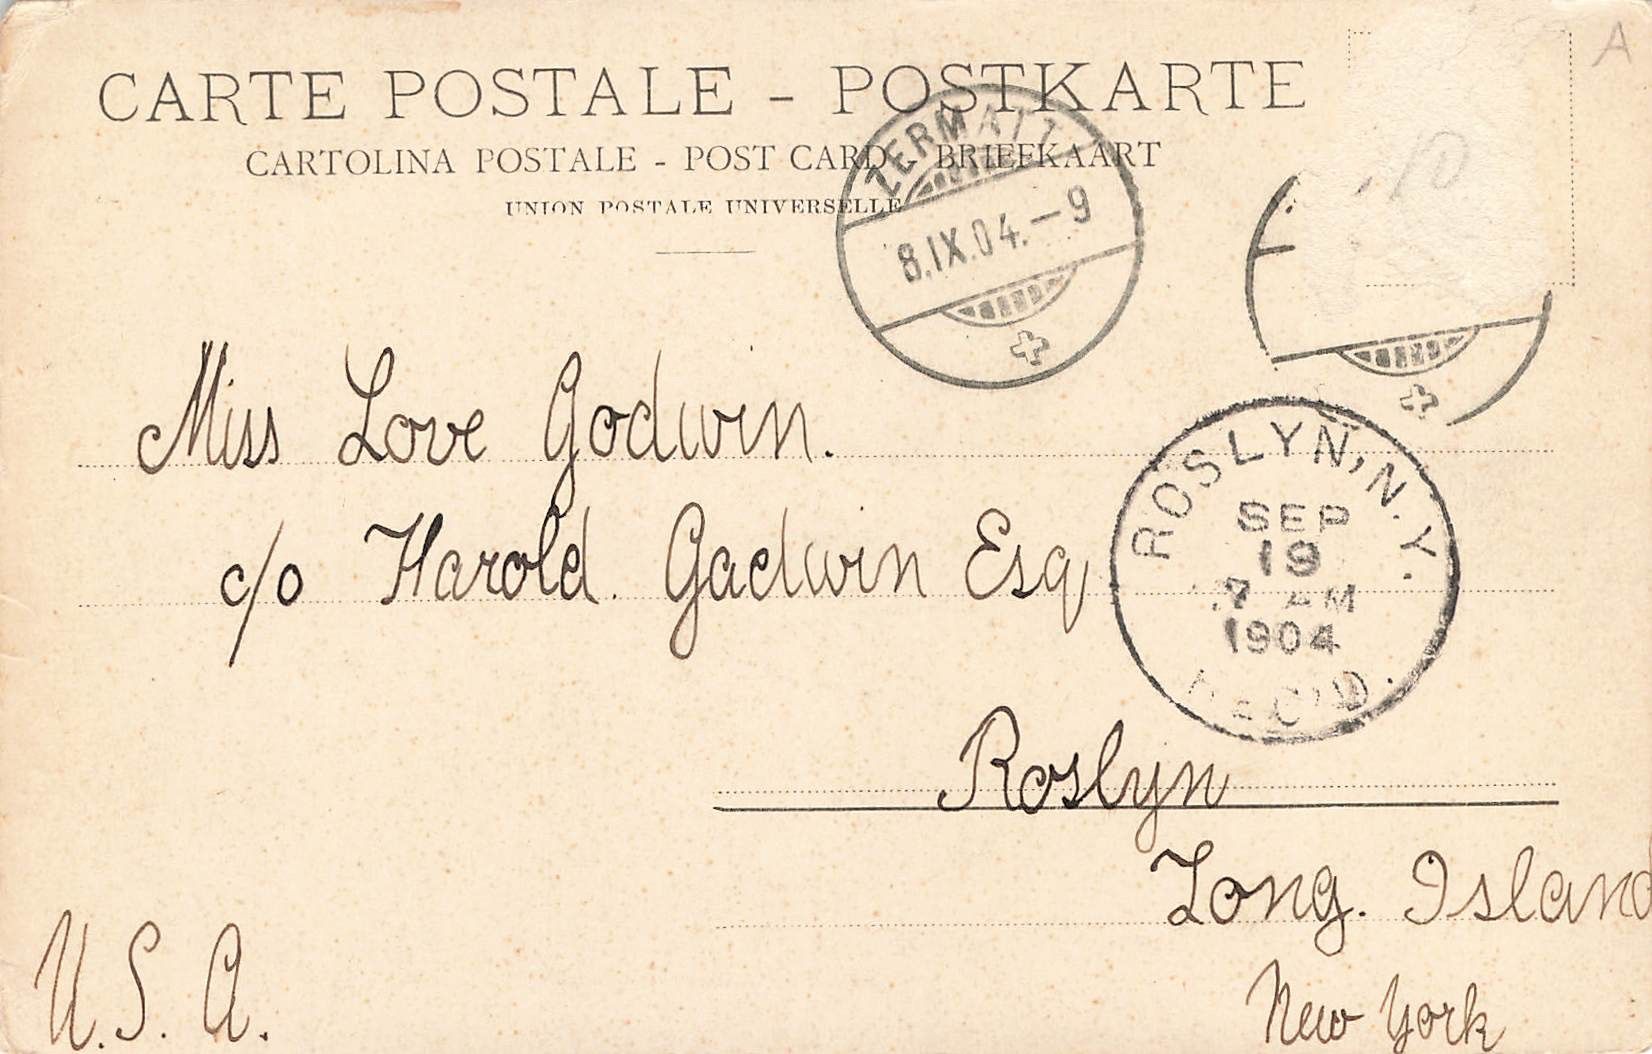 CARTE POSTALE - POSTKARTE
CARTOLINA POSTALE - POST CARD - BRIEFKAART
UNION POSTALE UNIVERSELLE
A
10
ZERMATT
8.IX.04.-9
Miss Love Godwin.
c/o Harold. Godwin Esq
ROSLYN, N.Y.
SEP
19
7 AM
1904
REC'D.
Roslyn
Long. Island
New York
U.S.A.